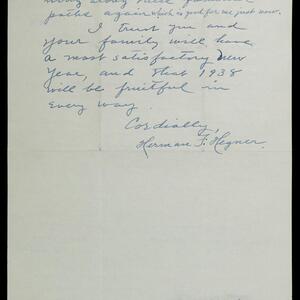 paths again which is good for me just now.
I trust you and
your family will have
a most satisfactory New
Year, and that 1938
will be fruitful in
every way.
Cordially,
Herman F. Hegner.